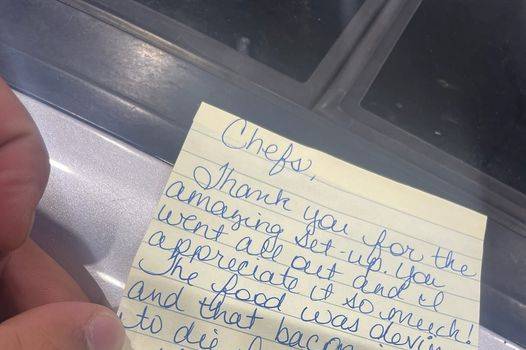 Chefs,
Thank you for the
amazing set-up. You
went all out and I
appreciate it so much!
The food was devin
and that bacon
to die